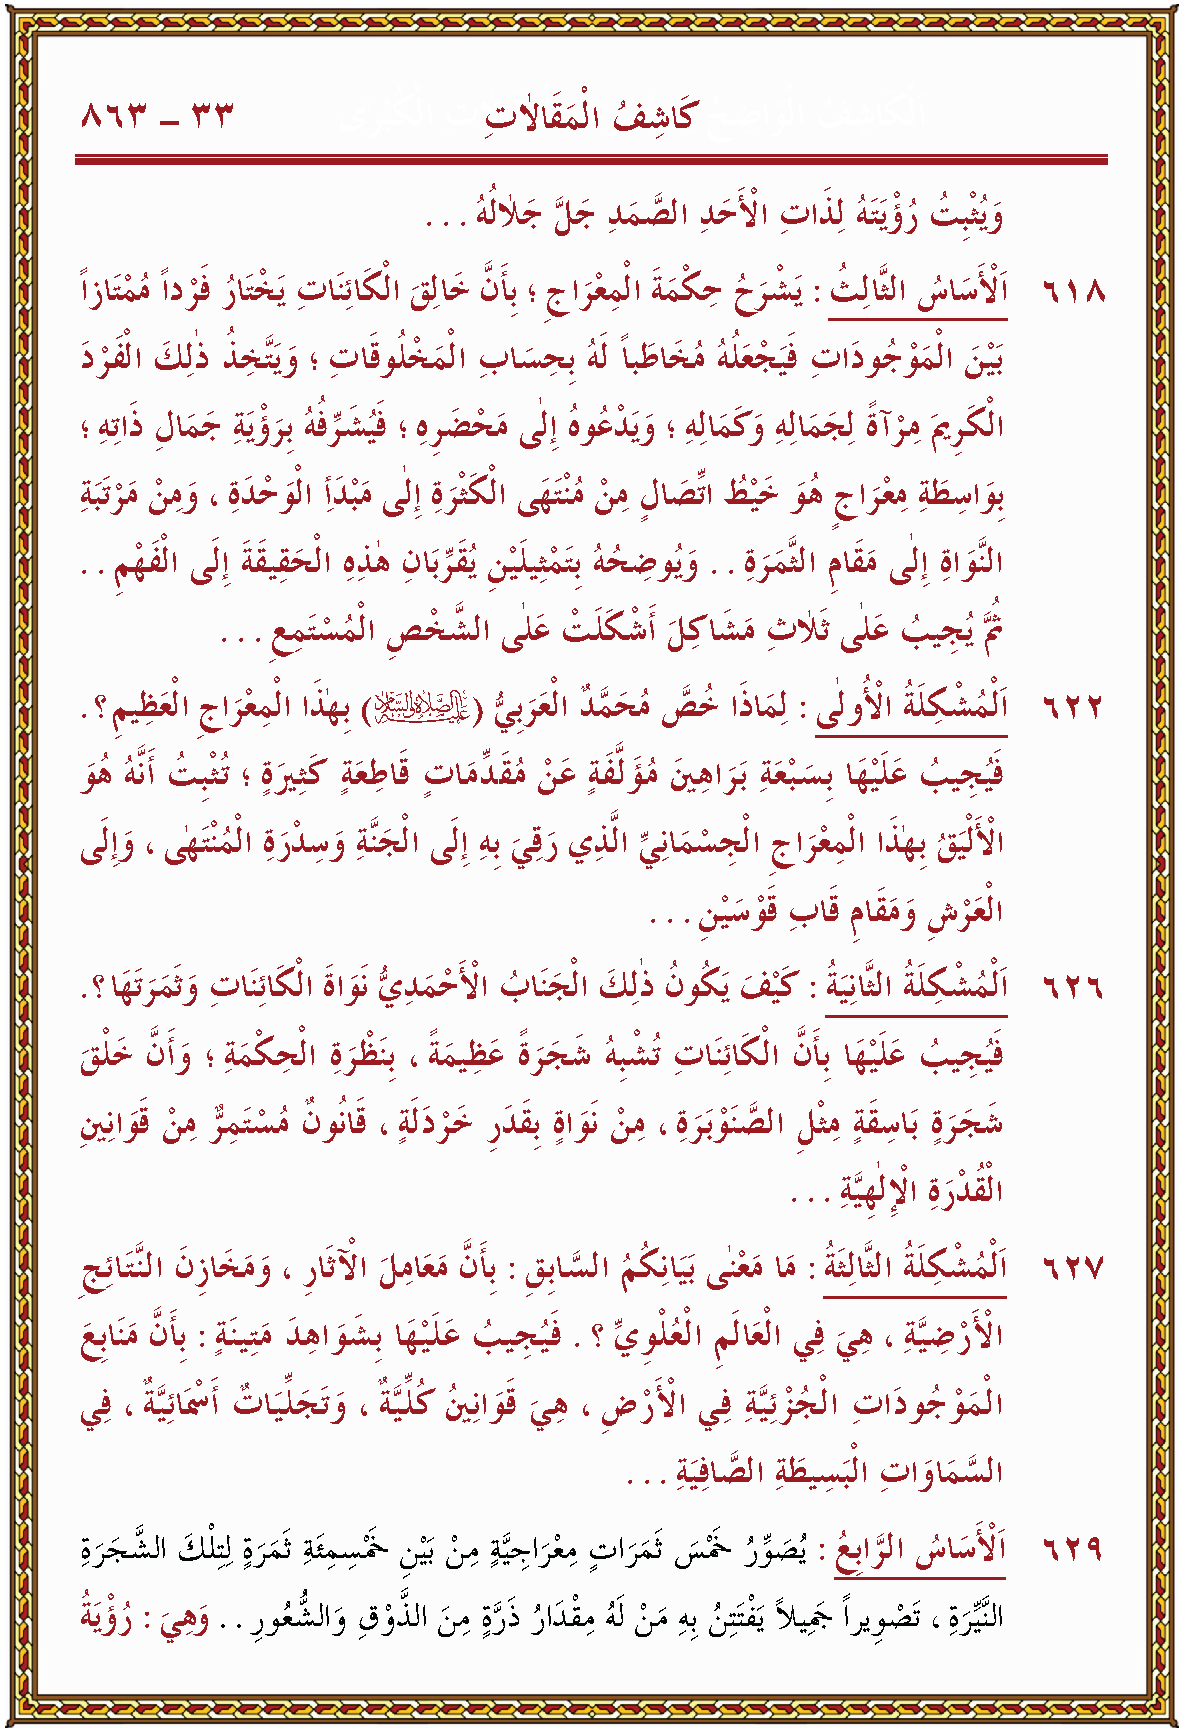 كَاشِفُ الْمَقَالَاتِ ٣٣ – ٨٦٣
وَيُثْبِتُ رُؤْيَتَهُ لِذَاتِ الْأَحَدِ الصَّمَدِ جَلَّ جَلَالُهُ . . .
٦١٨ اَلْأَسَاسُ الثَّالِثُ : يَشْرَحُ حِكْمَةَ الْمِعْرَاجِ ؛ بِأَنَّ خَالِقَ الْكَائِنَاتِ يَخْتَارُ فَرْداً مُمْتَازاً
بَيْنَ الْمَوْجُودَاتِ فَيَجْعَلُهُ مُخَاطَباً لَهُ بِحِسَابِ الْمَخْلُوقَاتِ ؛ وَيَتَّخِذُ ذٰلِكَ الْفَرْدَ
الْكَرِيمَ مِرْآةً لِجَمَالِهِ وَكَمَالِهِ ؛ وَيَدْعُوهُ إِلٰى مَحْضَرِهِ ؛ فَيُشَرِّفُهُ بِرُؤْيَةِ جَمَالِ ذَاتِهِ ؛
بِوَاسِطَةِ مِعْرَاجٍ هُوَ خَيْطُ اتِّصَالٍ مِنْ مُنْتَهَى الْكَثْرَةِ إِلٰى مَبْدَأِ الْوَحْدَةِ ، وَمِنْ مَرْتَبَةِ
النَّوَاةِ إِلٰى مَقَامِ الثَّمَرَةِ . . وَيُوضِحُهُ بِتَمْثِيلَيْنِ يُقَرِّبَانِ هٰذِهِ الْحَقِيقَةَ إِلَى الْفَهْمِ . .
ثُمَّ يُجِيبُ عَلٰى ثَلَاثِ مَشَاكِلَ أَشْكَلَتْ عَلٰى الشَّخْصِ الْمُسْتَمِعِ . . .
٦٢٢ اَلْمُشْكِلَةُ الْأُولٰى : لِمَاذَا خُصَّ مُحَمَّدٌ الْعَرَبِيُّ (عَلَيْهِ الصَّلَاةُ وَالسَّلَامُ) بِهٰذَا الْمِعْرَاجِ الْعَظِيمِ ؟ .
فَيُجِيبُ عَلَيْهَا بِسَبْعَةِ بَرَاهِينَ مُؤَلَّفَةٍ عَنْ مُقَدِّمَاتٍ قَاطِعَةٍ كَثِيرَةٍ ؛ تُثْبِتُ أَنَّهُ هُوَ
الْأَلْيَقُ بِهٰذَا الْمِعْرَاجِ الْجِسْمَانِيِّ الَّذِي رَقِيَ بِهِ إِلَى الْجَنَّةِ وَسِدْرَةِ الْمُنْتَهٰى ، وَإِلَى
الْعَرْشِ وَمَقَامِ قَابِ قَوْسَيْنِ . . .
٦٢٦ اَلْمُشْكِلَةُ الثَّانِيَةُ : كَيْفَ يَكُونُ ذٰلِكَ الْجَنَابُ الْأَحْمَدِيُّ نَوَاةَ الْكَائِنَاتِ وَثَمَرَتَهَا ؟ .
فَيُجِيبُ عَلَيْهَا بِأَنَّ الْكَائِنَاتِ تُشْبِهُ شَجَرَةً عَظِيمَةً ، بِنَظْرَةِ الْحِكْمَةِ ؛ وَأَنَّ خَلْقَ
شَجَرَةٍ بَاسِقَةٍ مِثْلِ الصَّنَوْبَرَةِ ، مِنْ نَوَاةٍ بِقَدَرِ خَرْدَلَةٍ ، قَانُونٌ مُسْتَمِرٌّ مِنْ قَوَانِينِ
الْقُدْرَةِ الْإِلٰهِيَّةِ . . .
٦٢٧ اَلْمُشْكِلَةُ الثَّالِثَةُ : مَا مَعْنٰى بَيَانِكُمُ السَّابِقِ : بِأَنَّ مَعَامِلَ الْآثَارِ ، وَمَخَازِنَ النَّتَائِجِ
الْأَرْضِيَّةِ ، هِيَ فِي الْعَالَمِ الْعُلْوِيِّ ؟ . فَيُجِيبُ عَلَيْهَا بِشَوَاهِدَ مَتِينَةٍ : بِأَنَّ مَنَابِعَ
الْمَوْجُودَاتِ الْجُزْئِيَّةِ فِي الْأَرْضِ ، هِيَ قَوَانِينُ كُلِّيَّةٌ ، وَتَجَلِّيَاتٌ أَسْمَائِيَّةٌ ، فِي
السَّمَاوَاتِ الْبَسِيطَةِ الصَّافِيَةِ . . .
٦٢٩ اَلْأَسَاسُ الرَّابِعُ : يُصَوِّرُ خَمْسَ ثَمَرَاتٍ مِعْرَاجِيَّةٍ مِنْ بَيْنِ خَمْسِمِئَةِ ثَمَرَةٍ لِتِلْكَ الشَّجَرَةِ
النَّيِّرَةِ ، تَصْوِيراً جَمِيلاً يَفْتَتِنُ بِهِ مَنْ لَهُ مِقْدَارُ ذَرَّةٍ مِنَ الذَّوْقِ وَالشُّعُورِ . . وَهِيَ : رُؤْيَةُ